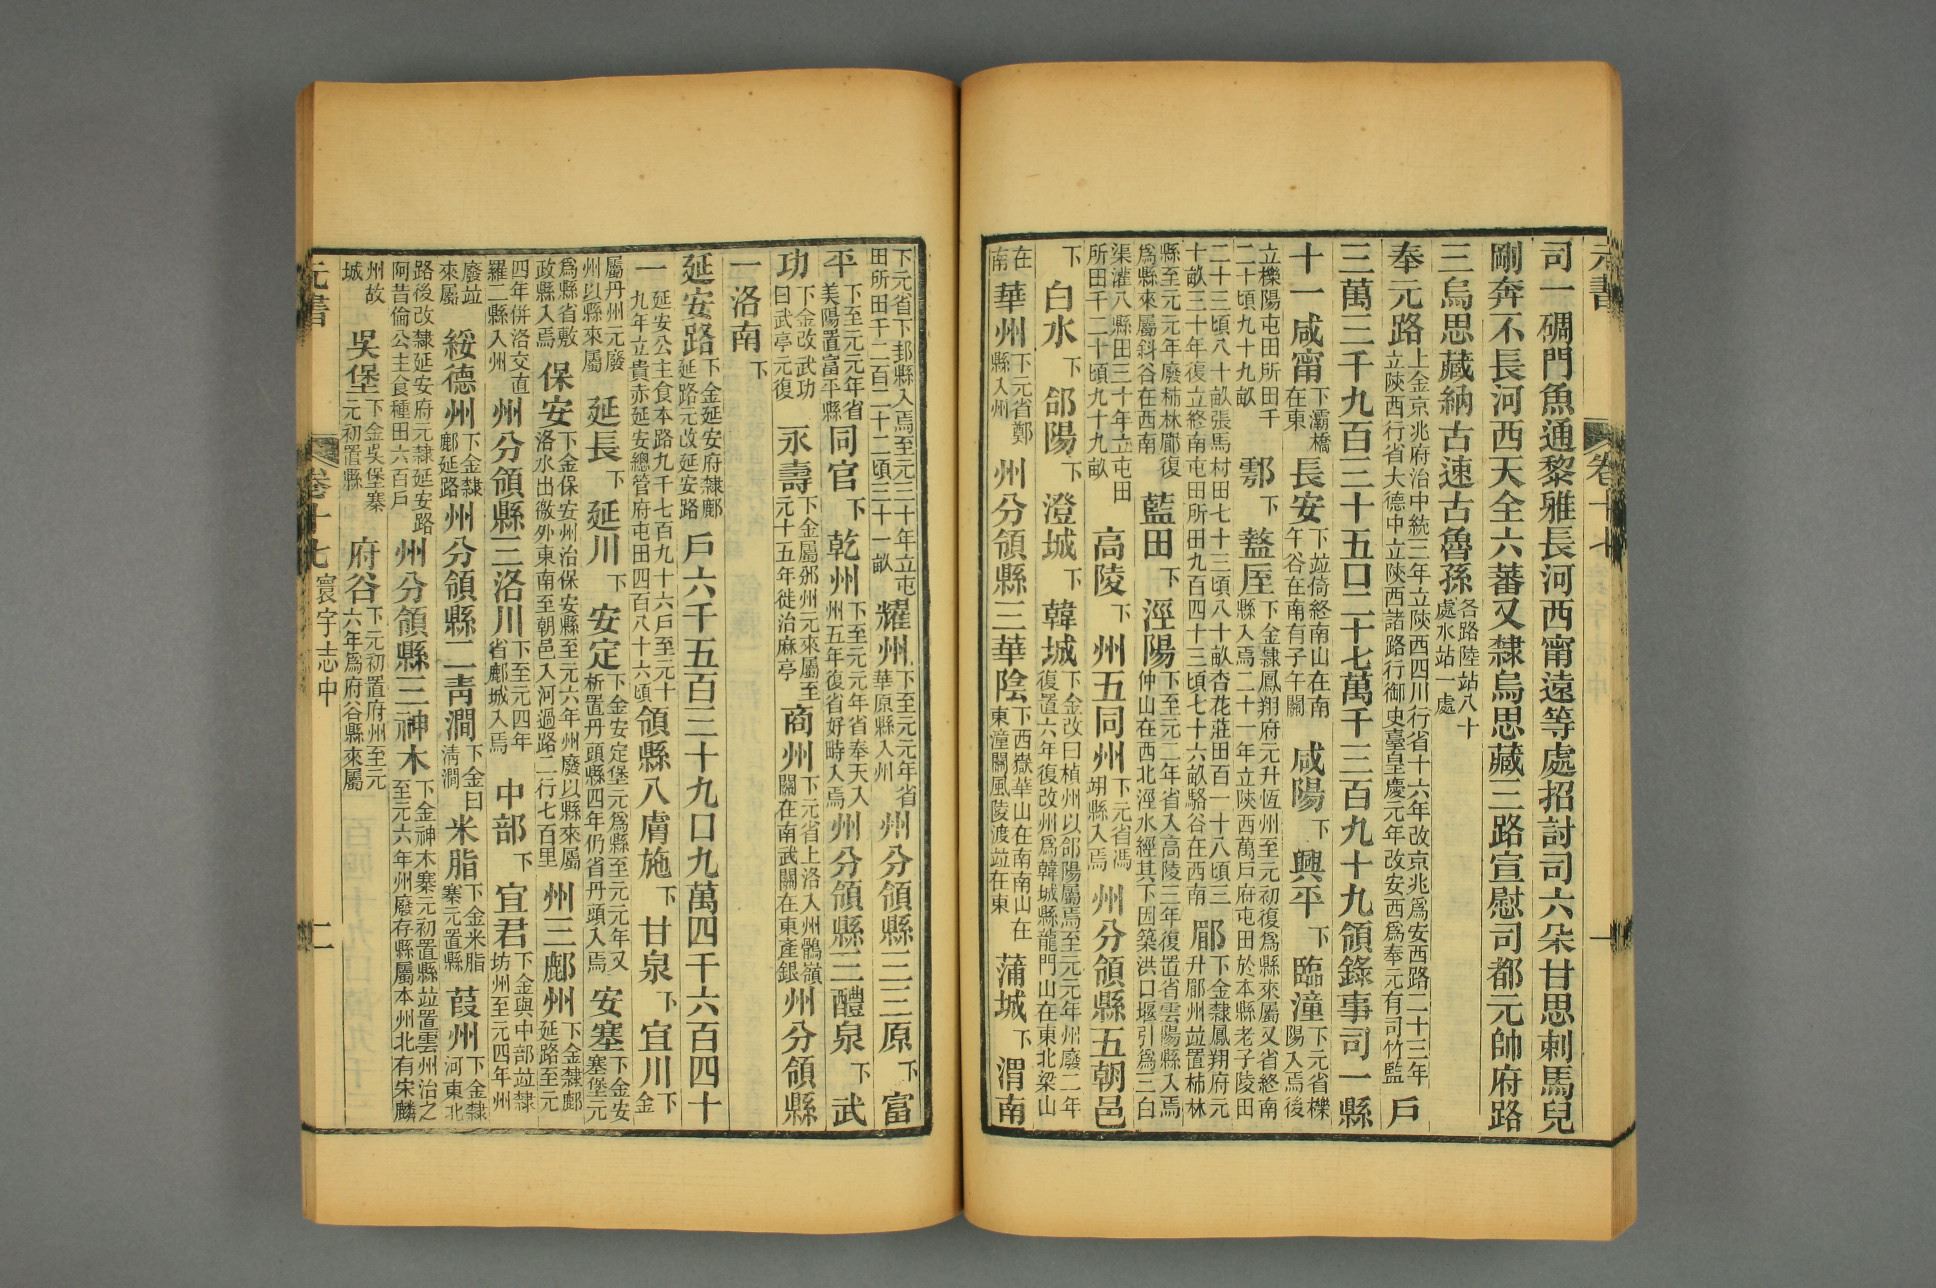 元書
卷十七
一
司一碉門魚通黎雅長河西甯遠等處招討司六朵甘思刺馬兒
剛奔不長河西天全六蕃又隸烏思藏三路宣慰司都元帥府路
三烏思藏納古速古魯孫各路陸站八十處水站一處
奉元路上金京兆府治中統三年立陝西四川行省十六年改京兆爲安西路二十三年立陝西行省大德中立陝西諸路行御史臺皇慶元年改安西爲奉元有司竹監戶
三萬三千九百三十五口二十七萬千三百九十九領錄事司一縣
十一咸甯下灞橋在東長安下竝倚終南山在南午谷在南有子午關咸陽下興平下臨潼下元省櫟陽入焉後
立櫟陽屯田所田千二十頃九十九畝鄠下盩厔下金隸鳳翔府元升恆州至元初復爲縣來屬又省終南縣入焉二十一年立陝西萬戶府屯田於本縣老子陵田
二十三頃八十畝張馬村田七十三頃八十畝杏花莊田百一十八頃三十畝三十年復立終南屯田所田九百四十三頃七十六畝駱谷在西南郿下金隸鳳翔府元升郿州竝置柿林
縣至元元年廢柿林郿復爲縣來屬斜谷在西南藍田下涇陽下至元二年省入高陵三年復置省雲陽縣入焉仲山在西北涇水經其下因築洪口堰引爲三白
渠灌八縣田三十年立屯田所田千二十頃九十九畝高陵下州五同州下元省馮翊縣入焉州分領縣五朝邑
下白水下郃陽下澄城下韓城下金改曰楨州以郃陽屬焉至元元年州廢二年復置六年復改州爲韓城縣龍門山在東北梁山
在南華州下元省鄭縣入州州分領縣三華陰下西嶽華山在南南山在東潼關風陵渡竝在東蒲城下渭南
下元省下邽縣入焉至元三十年立屯田所田千二百二十二頃三十一畝耀州下至元元年省華原縣入州州分領縣三三原下富
平下至元元年省美陽置富平縣同官下乾州下至元元年省奉天入州五年復省好畤入焉州分領縣三醴泉下武
功下金改武功曰武亭元復永壽下金屬邠州元來屬至元十五年徙治麻亭商州下元省上洛入州鶻嶺關在南武關在東產銀州分領縣
一洛南下
延安路下金延安府隸鄜延路元改延安路戶六千五百三十九口九萬四千六百四十
一延安公主食本路九千七百九十六戶至元十九年立貴赤延安總管府屯田四百八十六頃領縣八膚施下甘泉下宜川下金
屬丹州元廢州以縣來屬延長下延川下安定下金安定堡元爲縣至元元年又析置丹頭縣四年仍省丹頭入焉安塞下金安塞堡元
爲縣省敷政縣入焉保安下金保安州治保安縣至元六年州廢以縣來屬洛水出徼外東南至朝邑入河過路二行七百里州三鄜州下金隸鄜延路至元
四年併洛交直羅二縣入州州分領縣三洛川下至元四年省鄜城入焉中部下宜君下金與中部竝隸坊州至元四年州
廢竝來屬綏德州下金隸鄜延路州分領縣二青澗下金曰清澗米脂下金米脂寨元置縣葭州下金隸河東北
路後改隸延安府元隸延安路阿昔倫公主食種田六百戶州分領縣三神木下金神木寨元初置縣竝置雲州治之至元六年州廢存縣屬本州北有宋麟
州故城吳堡下金吳堡寨元初置縣府谷下元初置府州至元六年爲府谷縣來屬
元書
卷十七寰宇志中
二